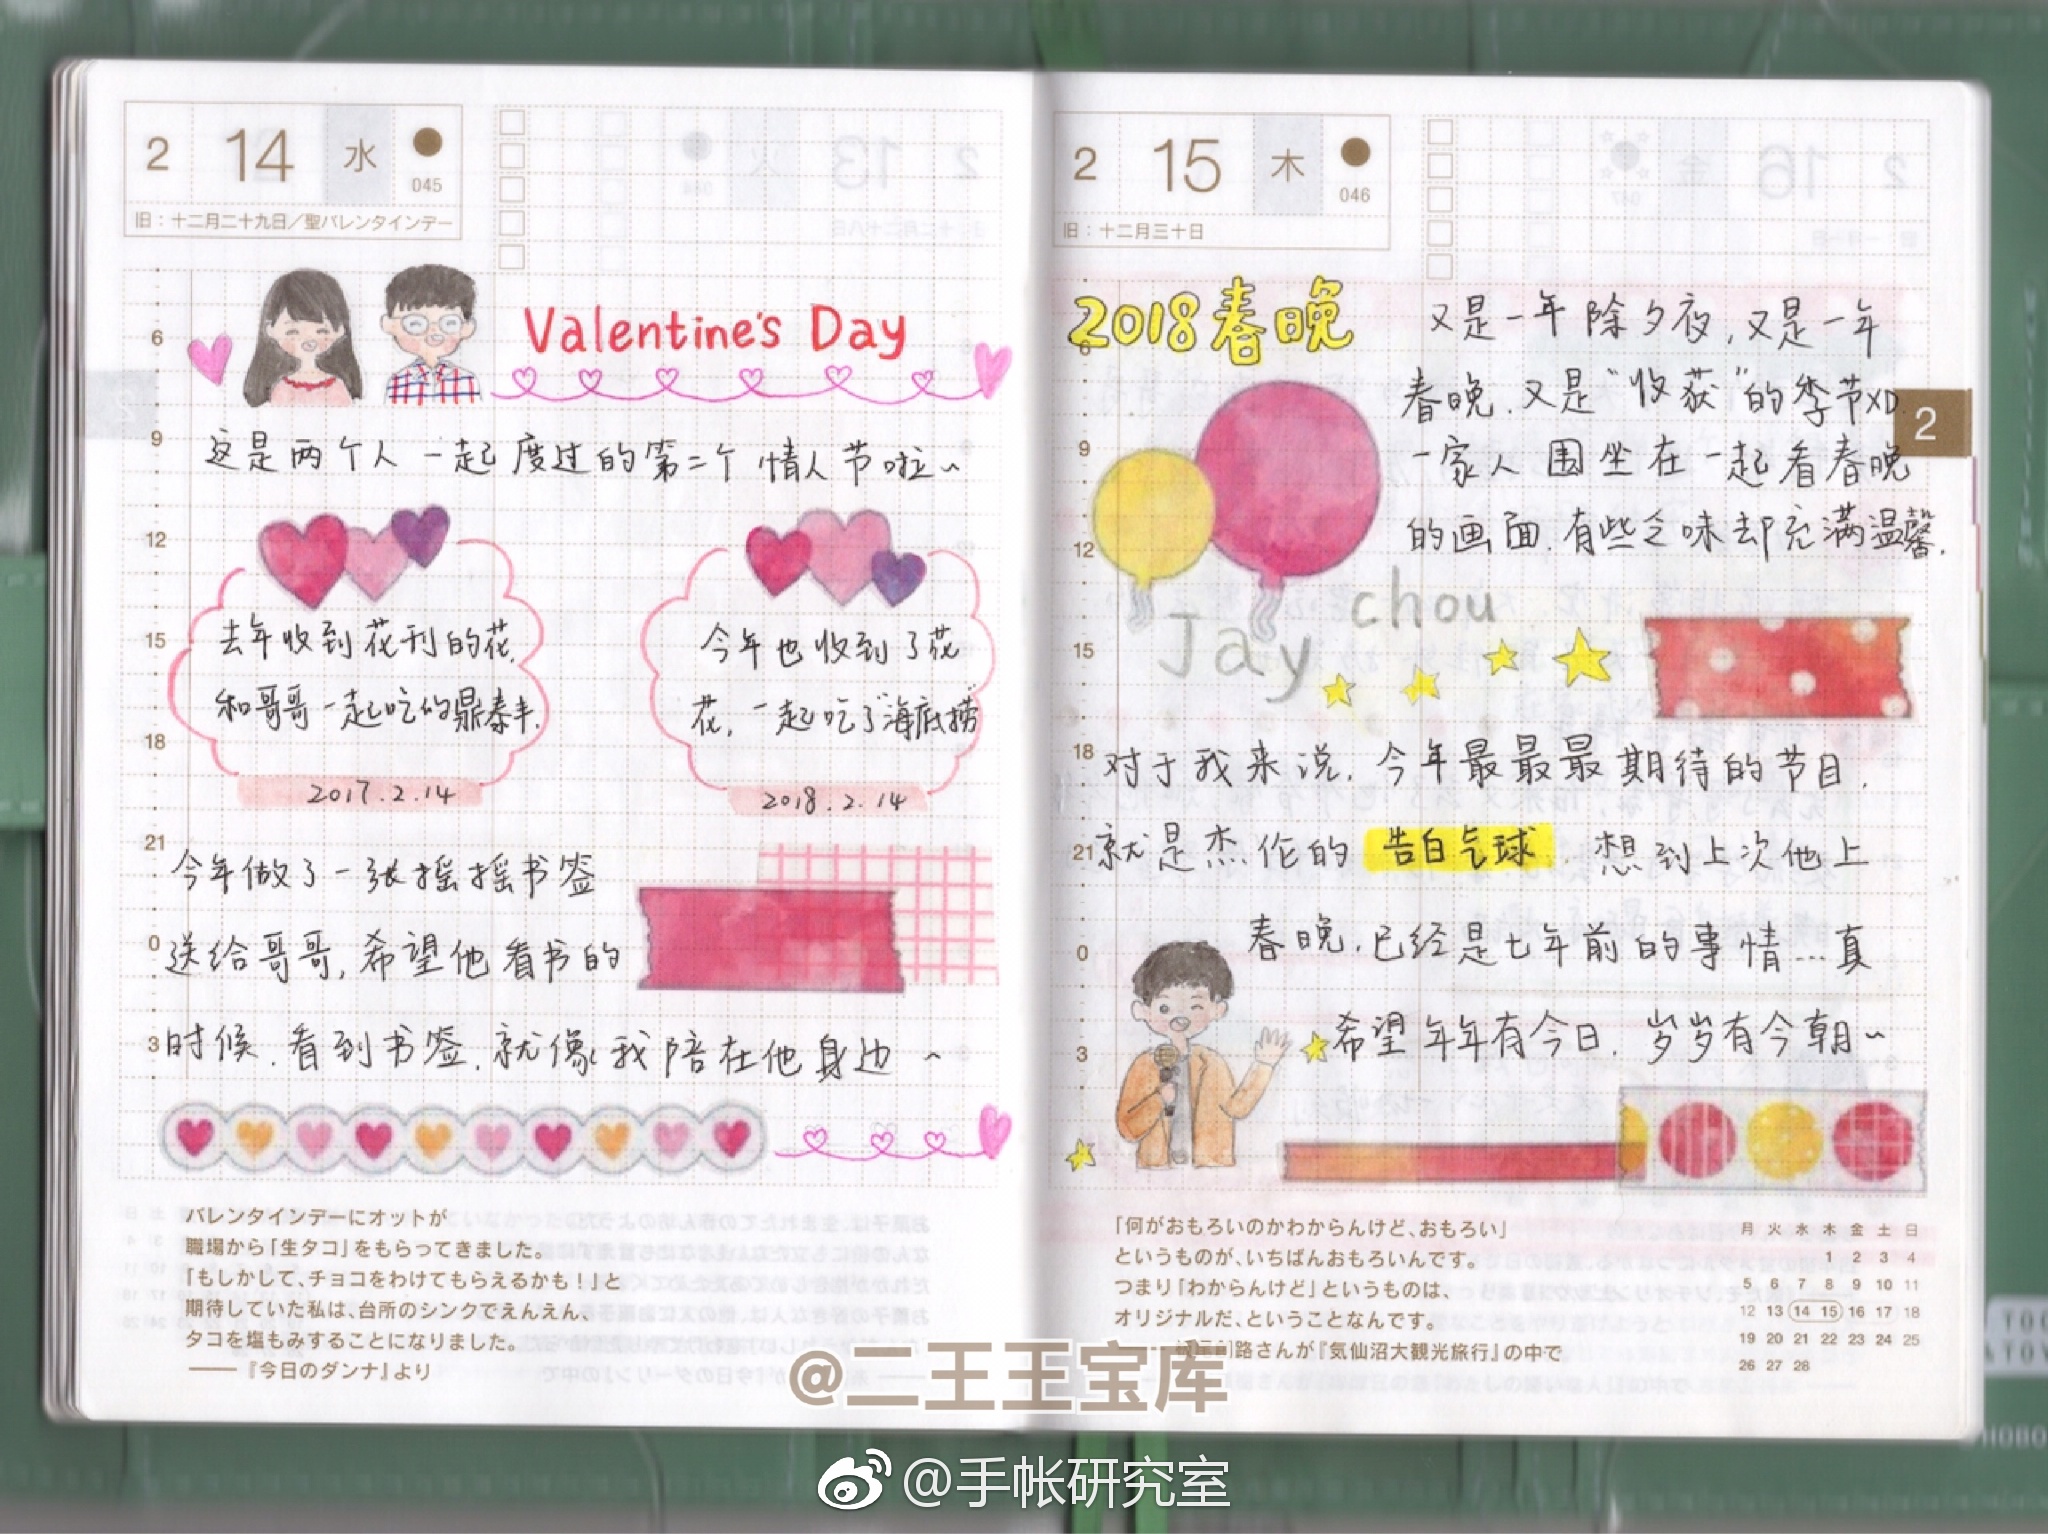 2 14 水 045
旧：十二月二十九日／聖バレンタインデー
Valentine's Day
这是两个人一起度过的第二个情人节啦~
去年收到花刊的花,
和哥哥一起吃的鼎泰丰.
2017.2.14
今年也收到了花
花，一起吃了"海底捞
2018.2.14
今年做了一张摇摇书签
送给哥哥,希望他看书的
时候.看到书签.就像我陪在他身边~
6
9
12
15
18
21
0
3
バレンタインデーにオットが
職場から「生タコ」をもらってきました。
『もしかして、チョコをわけてもらえるかも！』と
期待していた私は、台所のシンクでえんえん、
タコを塩もみすることになりました。
——『今日のダンナ』より
2 15 木 046
旧：十二月三十日
2018春晚
又是一年除夕夜,又是一年
春晚.又是"收获"的季节XD
一家人围坐在一起看春晚
的画面.有些乏味却充满温馨.
Jay chou
对于我来说.今年最最最期待的节目,
就是杰伦的告白气球.想到上次他上
春晚.已经是七年前的事情…真
希望年年有今日.岁岁有今朝~
2
6
9
12
15
18
21
0
3
「何がおもろいのかわからんけど、おもろい」
というものが、いちばんおもろいんです。
つまり「わからんけど」というものは、
オリジナルだ、ということなんです。
路さんが『気仙沼大観光旅行』の中で
月 火 水 木 金 土 日
1 2 3 4
5 6 7 8 9 10 11
12 13 14 15 16 17 18
19 20 21 22 23 24 25
26 27 28
@二王王宝库
@手帐研究室